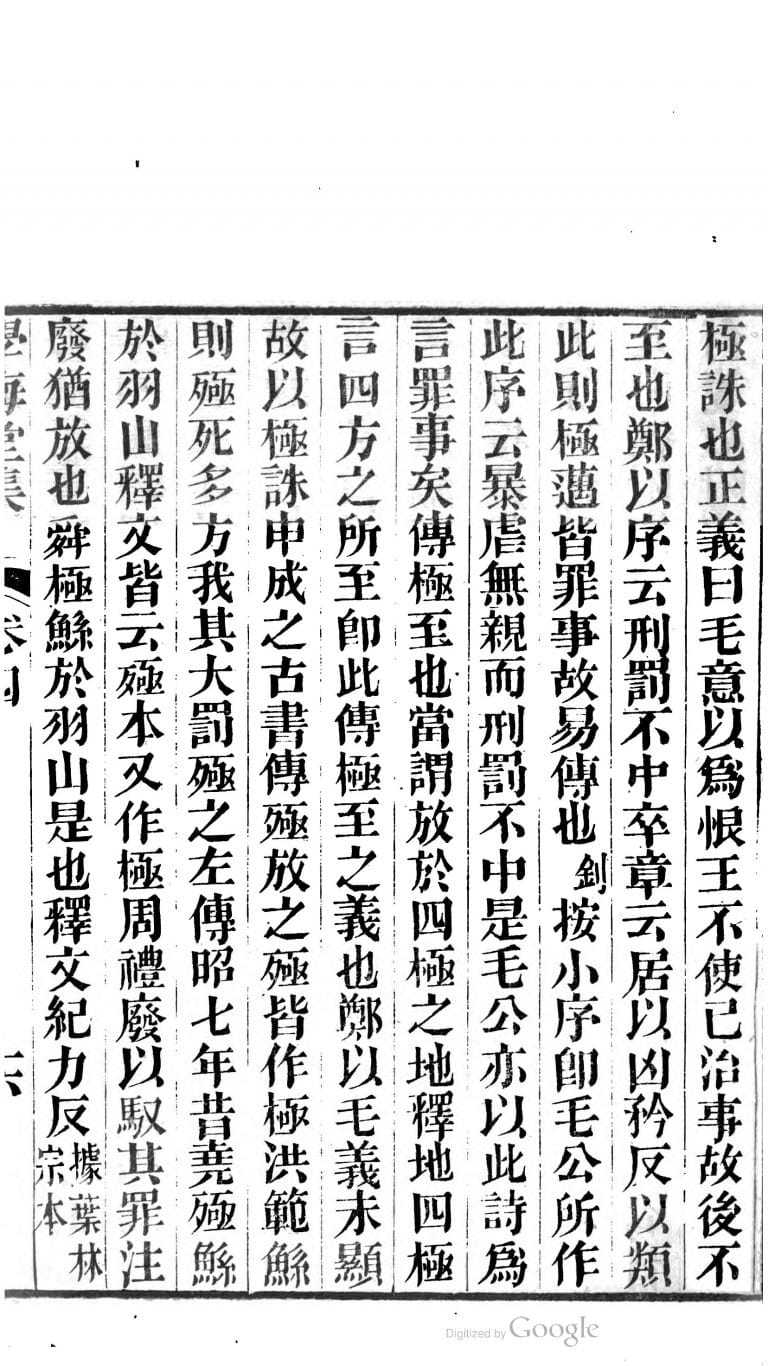 極誅也正義曰毛意以爲恨王不使已治事故後不
至也鄭以序云刑罰不中卒章云居以凶矜反以類
此則極邁皆罪事故易傳也釗按小序卽毛公所作
此序云暴虐無親而刑罰不中是毛公亦以此詩爲
言罪事矣傳極至也當謂放於四極之地釋地四極
言四方之所至卽此傳極至之義也鄭以毛義未顯
故以極誅申成之古書傳殛放之殛皆作極洪範鯀
則殛死多方我其大罰殛之左傳昭七年昔堯殛鯀
於羽山釋文皆云殛本又作極周禮廢以馭其罪注
廢猶放也舜極鯀於羽山是也釋文紀力反據葉林宗本
學海堂集 卷四 六
Digitized by Google